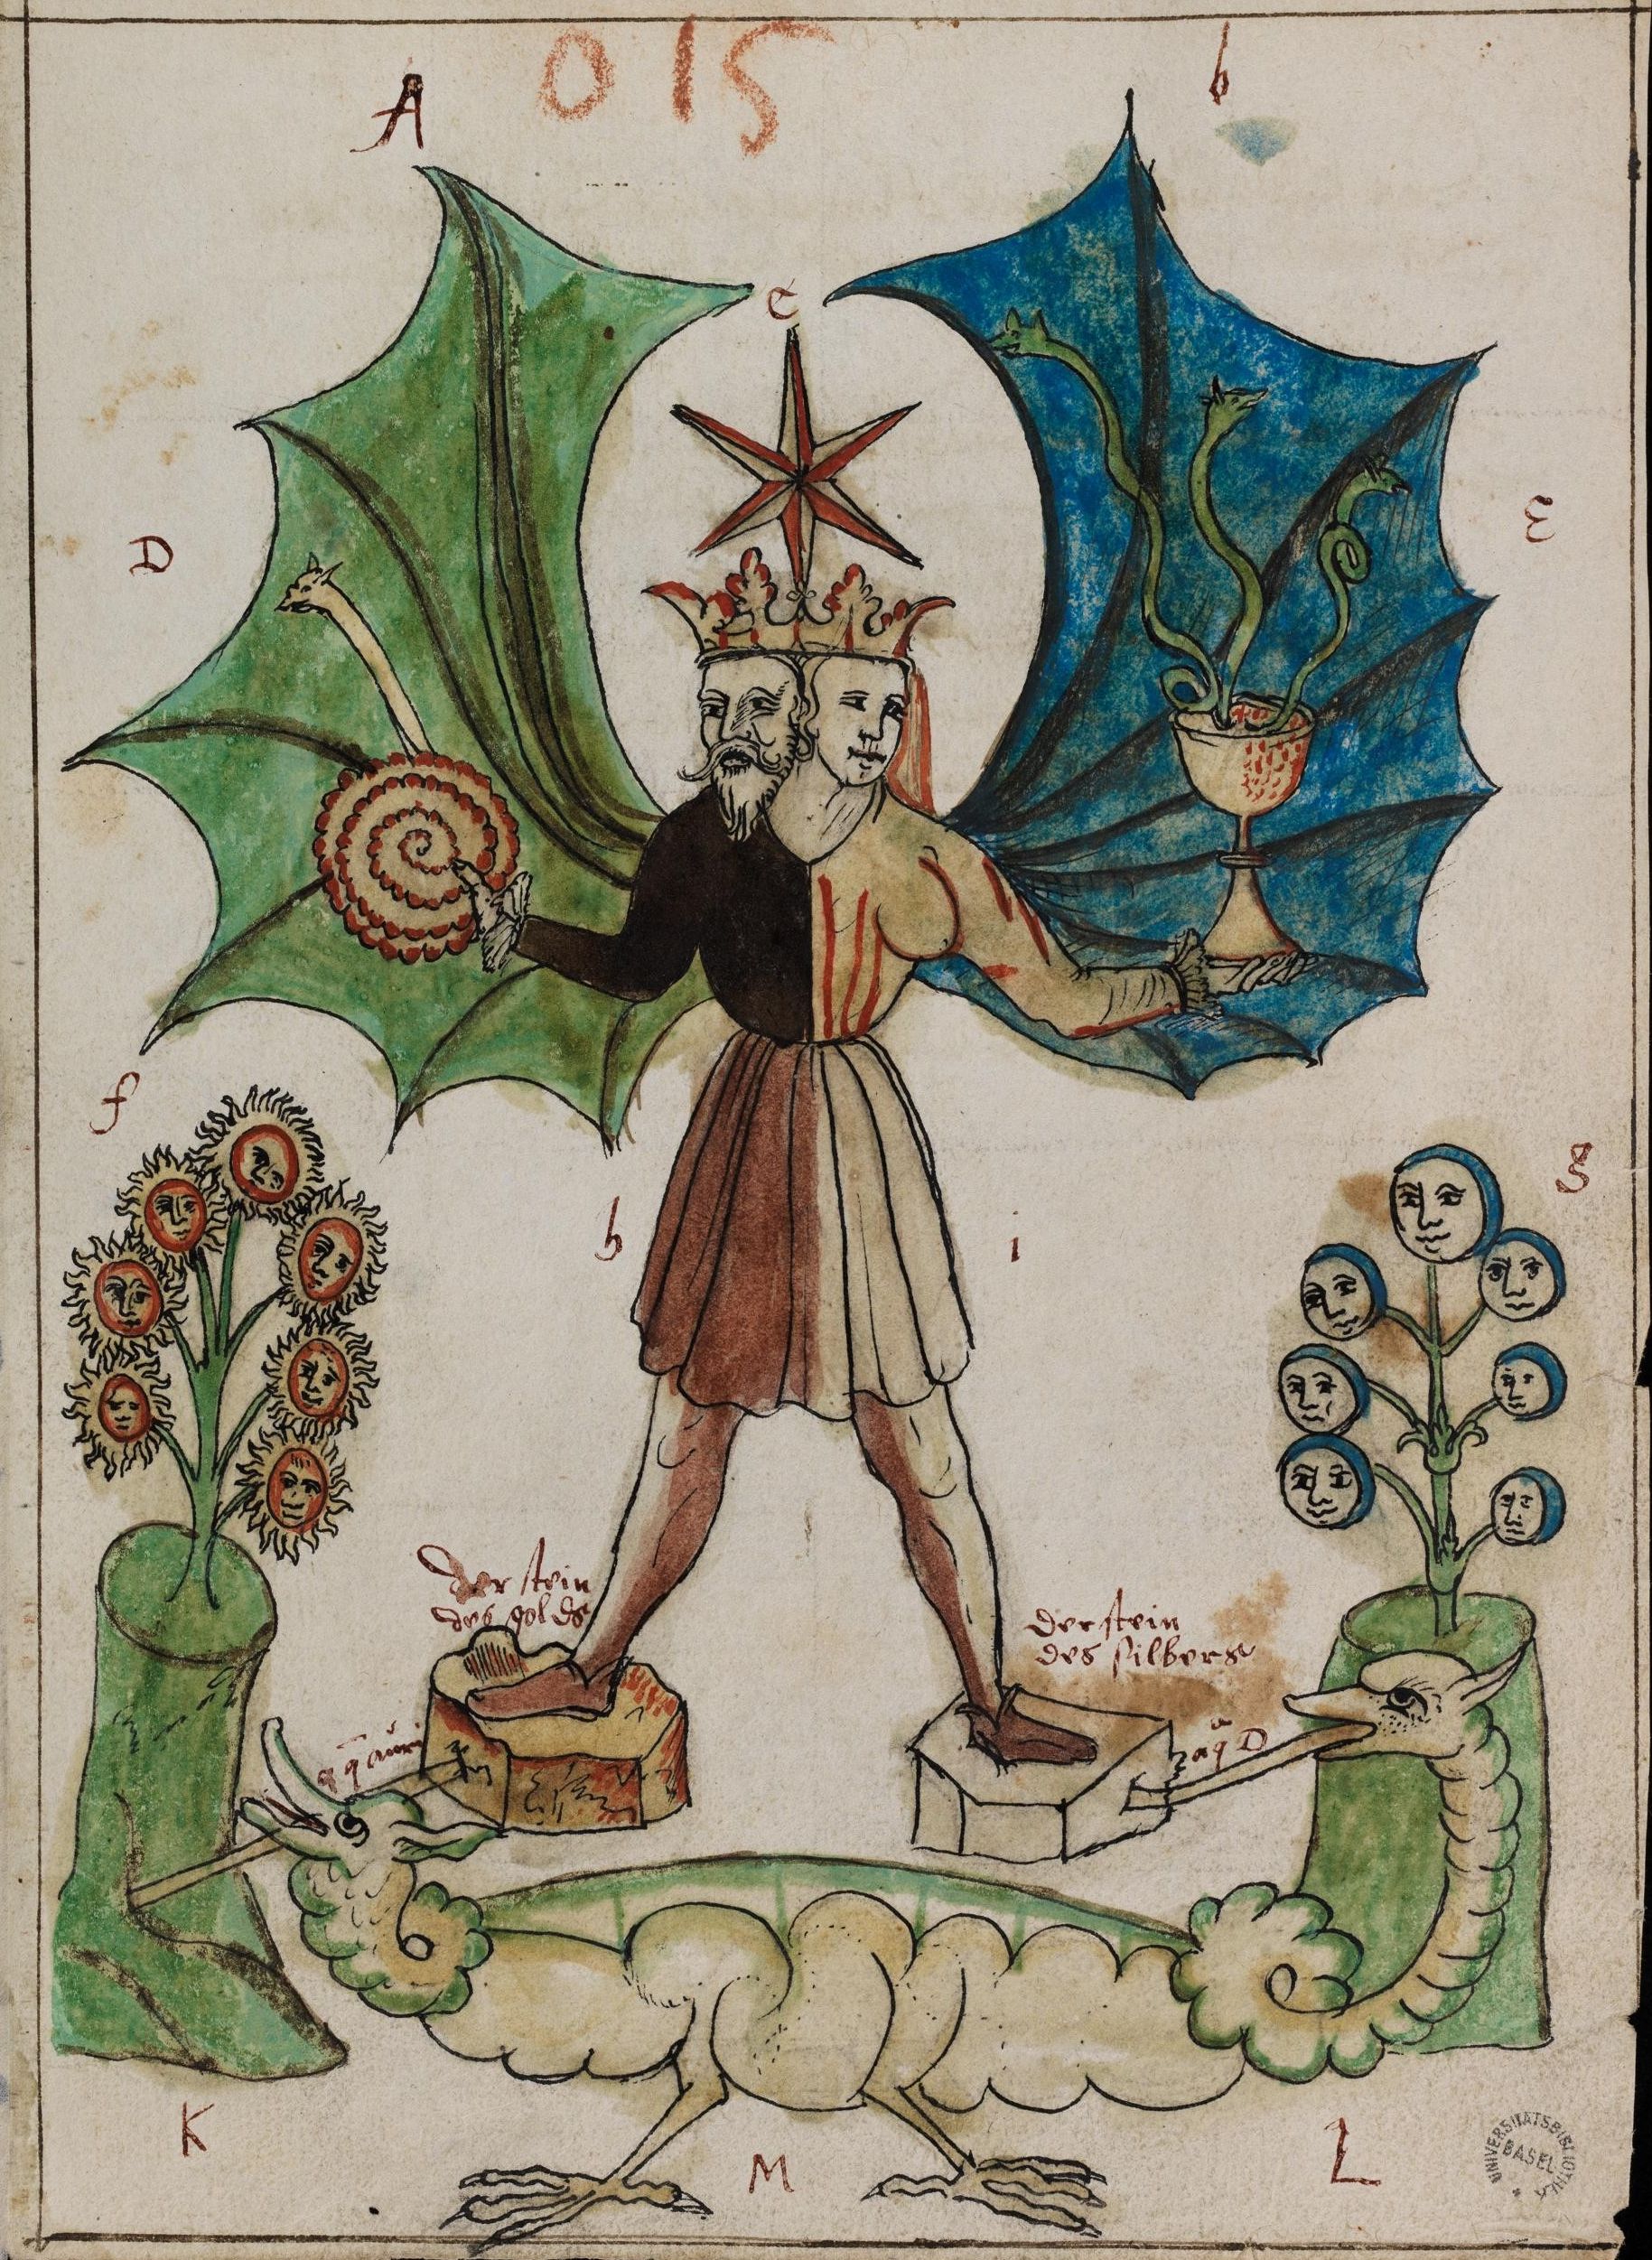 015
A
b
c
D
E
f
g
h
i
der stein
des golds
der stein
des silbers
aq D
K
M
L
UNIVERSITÄTSBIBLIOTHEK
BASEL